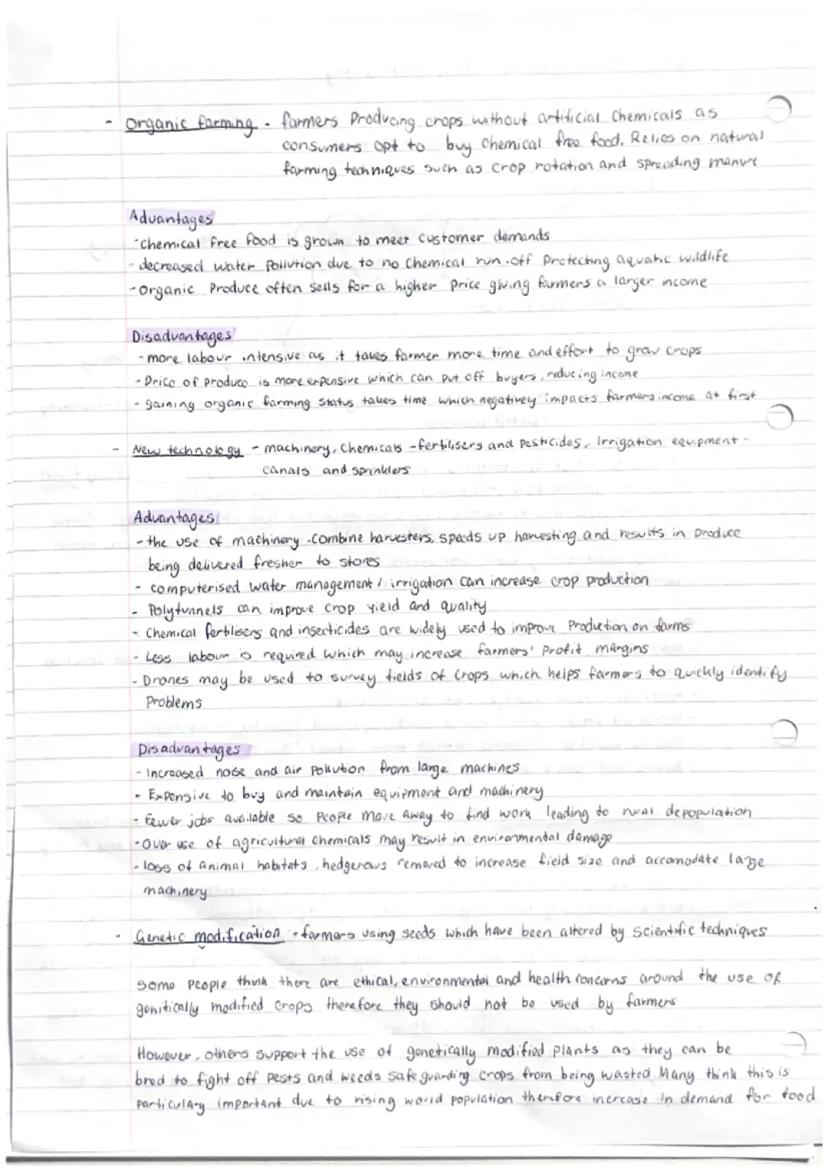 - Organic farming - farmers producing crops without artificial chemicals as
consumers opt to buy chemical free food. Relies on natural
farming techniques such as crop rotation and spreading manure
Advantages
- chemical free food is grown to meet customer demands
- decreased water pollution due to no chemical run-off protecting aquatic wildlife
- Organic produce often sells for a higher price giving farmers a larger income
Disadvantages
- more labour intensive as it takes farmer more time and effort to grow crops
- Price of produce is more expensive which can put off buyers, reducing income
- gaining organic farming status takes time which negatively impacts farmers income at first
- New technology - machinery, chemicals - fertilisers and pesticides, irrigation equipment -
canals and sprinklers
Advantages
- the use of machinery - combine harvesters, speeds up harvesting and results in produce
being delivered fresher to stores
- computerised water management / irrigation can increase crop production
- Polytunnels can improve crop yield and quality
- Chemical fertilisers and insecticides are widely used to improve production on farms
- Less labour is required which may increase farmers' profit margins
- Drones may be used to survey fields of crops which helps farmers to quickly identify
problems
Disadvantages
- Increased noise and air pollution from large machines
- Expensive to buy and maintain equipment and machinery
- Fewer jobs available so people move away to find work leading to rural depopulation
- Over use of agricultural chemicals may result in environmental damage
- loss of animal habitats, hedgerows removed to increase field size and accomodate large
machinery
- Genetic modification - farmers using seeds which have been altered by scientific techniques
Some people think there are ethical, environmental and health concerns around the use of
genitically modified crops therefore they should not be used by farmers
However, others support the use of genetically modified plants as they can be
bred to fight off pests and weeds safeguarding crops from being wasted. Many think this is
particulary important due to rising world population therefore increase in demand for food